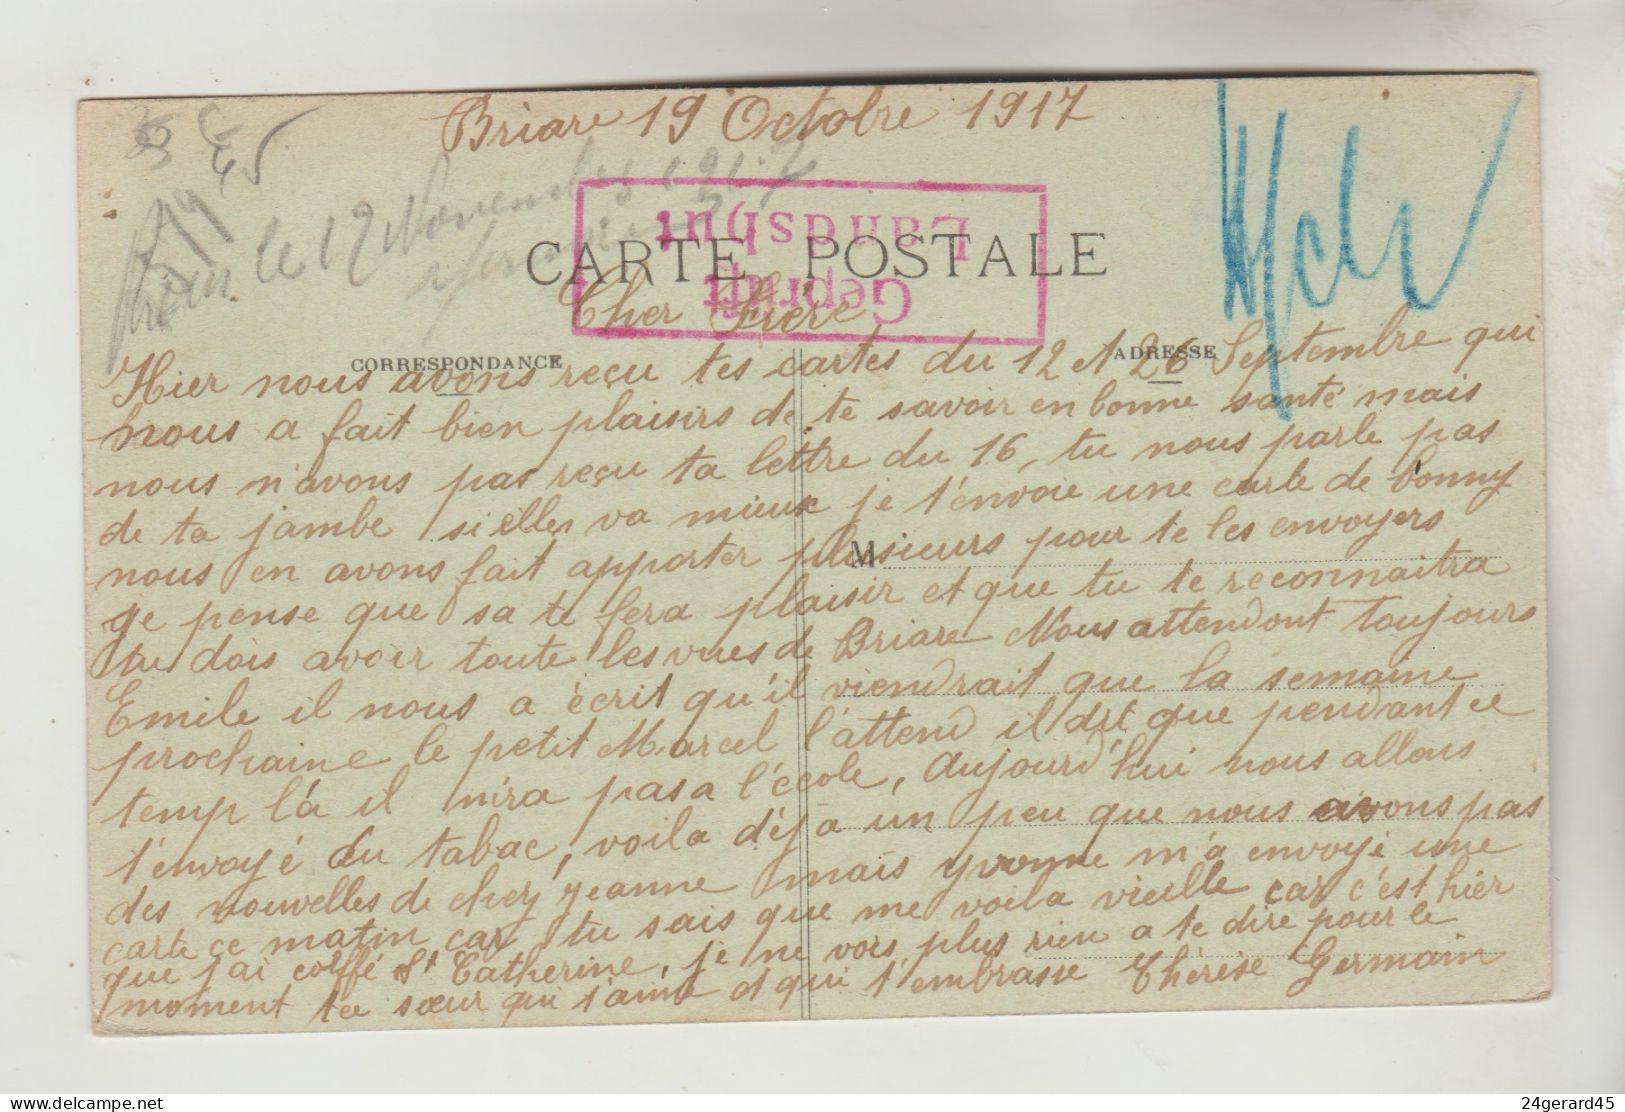 Briare 19 Octobre 1917
le 12 Novembre 1917
Geprüft
Landshut
CARTE POSTALE
Cher Frère
CORRESPONDANCE
ADRESSE
Hier nous avons reçu tes cartes du 12 et 26 Septembre qui
nous a fait bien plaisirs de te savoir en bonne santé mais
nous n'avons pas reçu ta lettre du 16, tu nous parle pas
de ta jambe si elles va mieux je t'envoie une carte de bonny
nous en avons fait apporter plusieurs pour te les envoyers
M
je pense que sa te fera plaisir et que tu te reconnaitra
tu dois avoir toute les vues de Briare Nous attendont toujours
Emile il nous a écrit qu'il viendrait que la semaine
prochaine le petit Marcel l'attend il dit que pendant ce
temp là il n'ira pas a l'école, aujourd'hui nous allons
t'envoyé du tabac, voila déjà un peu que nous avons pas
des nouvelles de chez jeanne mais yvonne m'a envoyé une
carte ce matin car tu sais que me voila vieille car c'est hier
que j'ai coiffé St Catherine, je ne vois plus rien a te dire pour le
moment ta sœur qui t'aime et qui t'embrasse Thérèse Germain
24gerard45